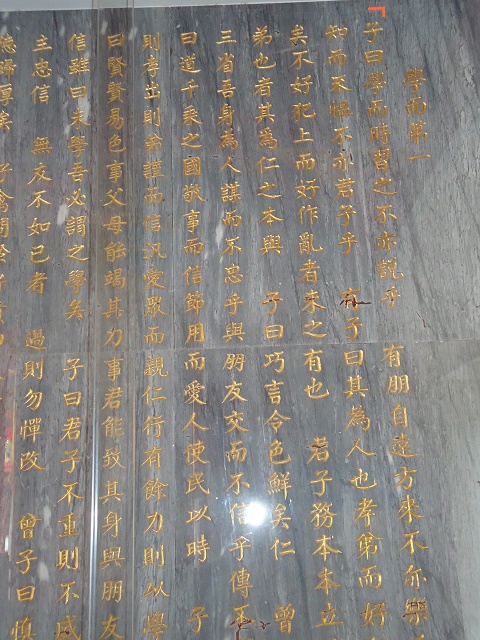 學而第一
子曰學而時習之不亦說乎 有朋自遠方來不亦樂
知而不慍不亦君子乎 有子曰其為人也孝弟而好
矣不好犯上而好作亂者未之有也 君子務本本立
弟也者其為仁之本與 子曰巧言令色鮮矣仁 曾
三省吾身為人謀而不忠乎與朋友交而不信乎傳不
曰道千乘之國敬事而信節用而愛人使民以時 子
則孝出則弟謹而信汎愛眾而親仁行有餘力則以學
曰賢賢易色事父母能竭其力事君能致其身與朋友
信雖曰未學吾必謂之學矣 子曰君子不重則不威
主忠信 無友不如己者 過則勿憚改 曾子曰慎
德歸厚矣 子禽問於